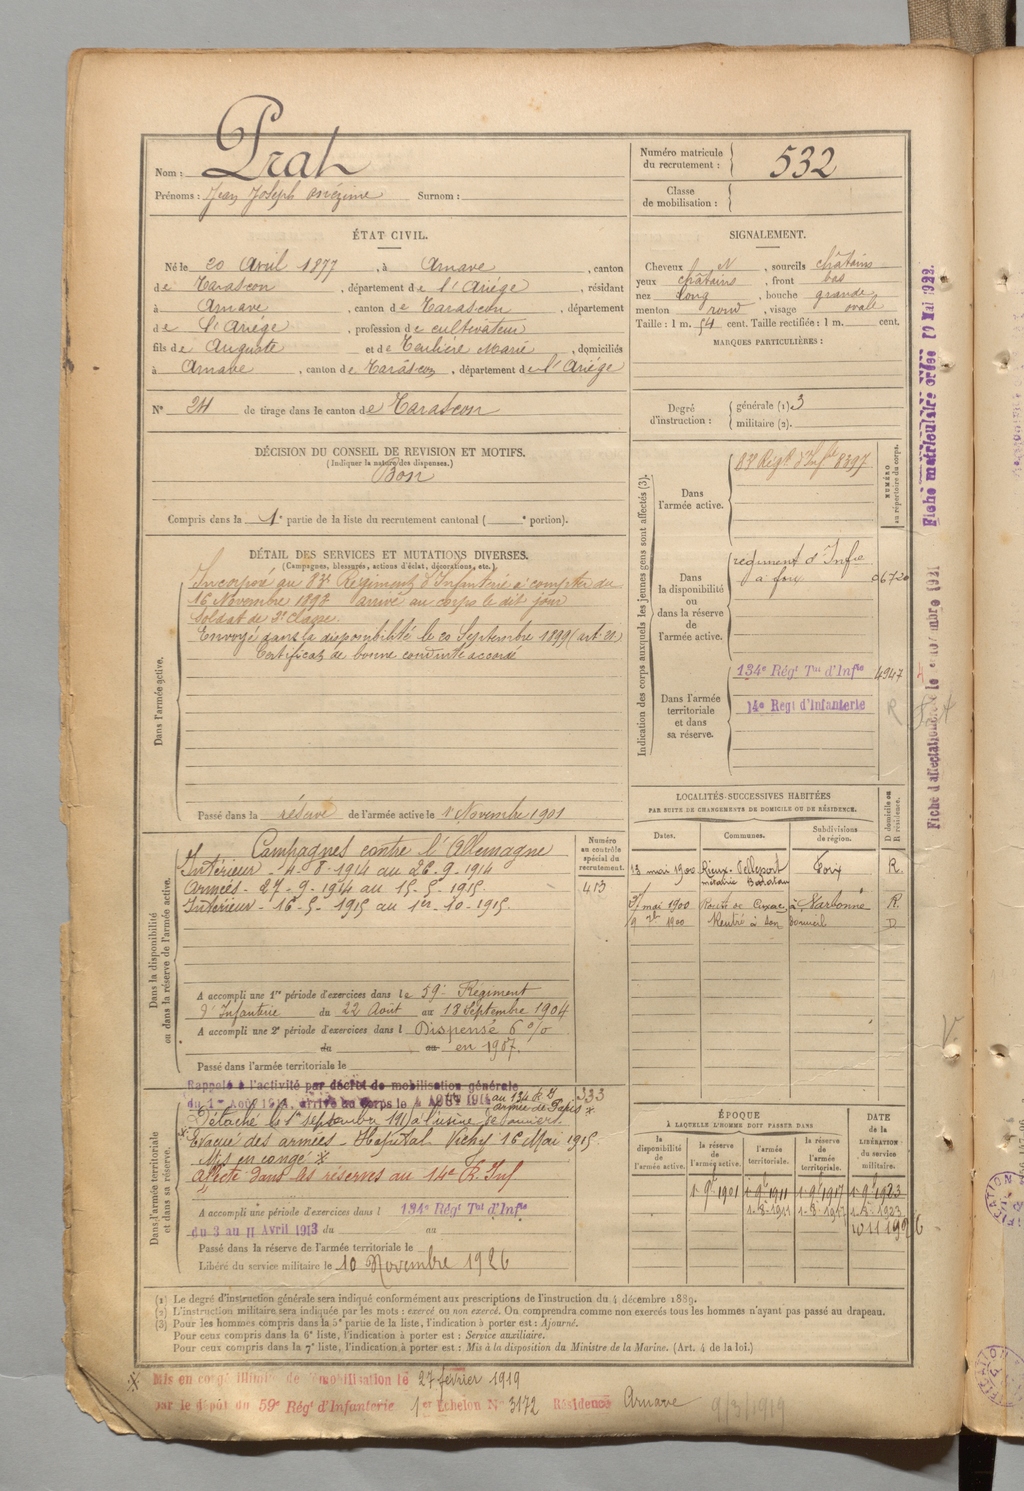 Nom : Prat
Prénoms : Jean Joseph Onézime Surnom :
Numéro matricule du recrutement : 532
Classe de mobilisation :
ÉTAT CIVIL.
Né le 20 Avril 1877, à Arnave, canton
de Tarascon, département de l'Ariége, résidant
à Arnave, canton de Tarascon, département
de l'Ariége, profession de cultivateur
fils de Auguste et de Teulière Marie, domiciliés
à Arnave, canton de Tarascon, département de l'Ariége
N° 24 de tirage dans le canton de Tarascon
SIGNALEMENT.
Cheveux N, sourcils châtains
yeux châtains, front bas
nez long, bouche grande
menton rond, visage ovale
Taille : 1 m. 54 cent. Taille rectifiée : 1 m. cent.
MARQUES PARTICULIÈRES :
Degré d'instruction : générale (1) 3
militaire (2).
DÉCISION DU CONSEIL DE REVISION ET MOTIFS.
(Indiquer la nature des dispenses.)
Bon
Compris dans la 1e partie de la liste du recrutement cantonal ( e portion).
DÉTAIL DES SERVICES ET MUTATIONS DIVERSES.
(Campagnes, blessures, actions d'éclat, décorations, etc.)
Dans l'armée active.
Incorporé au 83e Régiment d'Infanterie à compter du
16 Novembre 1898 arrivé au corps le dit jour
Soldat de 2e classe.
Envoyé dans la disponibilité le 20 Septembre 1899 (art 21)
Certificat de bonne conduite accordé
Passé dans la réserve de l'armée active le 1er Novembre 1901
Indication des corps auxquels les jeunes gens sont affectés (3).
NUMÉRO au répertoire du corps.
Dans l'armée active.
83e Régt d'Infie 8397
Dans la disponibilité ou dans la réserve de l'armée active.
régiment d'Infie
à foix 06720
Dans l'armée territoriale et dans sa réserve.
134e Régt Tal d'Infie 4947
14e Regt d'Infanterie R
LOCALITÉS SUCCESSIVES HABITÉES
PAR SUITE DE CHANGEMENTS DE DOMICILE OU DE RÉSIDENCE.
Dates. Communes. Subdivisions de région. D domicile ou R résidence.
13 mai 1900 Rieux-Pelleport Foix R.
métairie
31 mai 1900 Route de Cuxac à Narbonne R.
9 1900 Rentré à son domicile D
Dans la disponibilité ou dans la réserve de l'armée active.
Numéro au contrôle spécial du recrutement.
413
Campagnes contre l'Allemagne
Intérieur - 4-8-1914 au 26-9-1914
Armées - 27-9-1914 au 15-5-1915.
Intérieur - 16-5-1915 au 1er-10-1915.
A accompli une 1re période d'exercices dans le 59e Régiment
d'Infanterie du 22 Août au 18 Septembre 1904
A accompli une 2e période d'exercices dans l Dispensé 6 %
du au en 1907.
Passé dans l'armée territoriale le
Dans l'armée territoriale et dans sa réserve.
Rappelé à l'activité par décret de mobilisation générale
du 1er Août 1914, arrivé au Corps le 4 AOUT 1914 au 134 R I 333
Détaché le 1er septembre 1915 à l'usine
Evacué des armées - Hopital Vichy 16 Mai 1915.
Mis en congé
Affecté dans les réserves au 14e R. Inf
A accompli une période d'exercices dans l 134e Régt Tal d'Infie
du 3 au 11 Avril 1913 du au
Passé dans la réserve de l'armée territoriale le
Libéré du service militaire le 10 Novembre 1926
ÉPOQUE
À LAQUELLE L'HOMME DOIT PASSER DANS
la disponibilité de l'armée active. la réserve de l'armée active. l'armée territoriale. la réserve de l'armée territoriale.
DATE de la LIBÉRATION du service militaire.
1-9e 1901 1-9e 1911 1-9e 1917 1-9e 1923
1-8-1911 1-8-1917 1-8-1923
10 11 1926
(1) Le degré d'instruction générale sera indiqué conformément aux prescriptions de l'instruction du 4 décembre 1889.
(2) L'instruction militaire sera indiquée par les mots : exercé ou non exercé. On comprendra comme non exercés tous les hommes n'ayant pas passé au drapeau.
(3) Pour les hommes compris dans la 5e partie de la liste, l'indication à porter est : Ajourné.
Pour ceux compris dans la 6e liste, l'indication à porter est : Service auxiliaire.
Pour ceux compris dans la 7e liste, l'indication à porter est : Mis à la disposition du Ministre de la Marine. (Art. 4 de la loi.)
Mis en congé illimité de démobilisation le 27 février 1919
par le dépôt du 59e Régt d'Infanterie 1er Echelon N° 3172 Résidence Arnave 9/3/1919
Fiche matriculaire créée 10 Mai 1922.
Fiche d'affectation novembre 1921